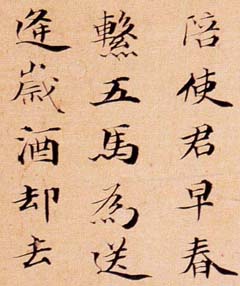 陪使君早春
繫五馬為送
逢歲酒却去